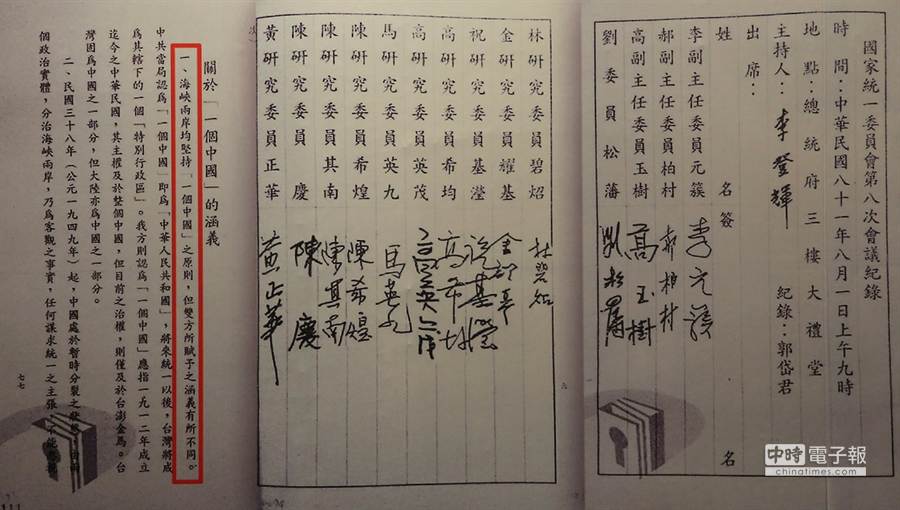 國家統一委員會第八次會議紀錄
時間：中華民國八十一年八月一日上午九時
地點：總統府三樓大禮堂
主持人：李登輝 紀錄：郭岱君
出席：
姓名 簽名
李副主任委員元簇 李元簇
郝副主任委員柏村 郝柏村
高副主任委員玉樹 高玉樹
劉委員松藩 劉松藩
林研究委員碧炤 林碧炤
金研究委員耀基 金耀基
祝研究委員基瀅 祝基瀅
高研究委員希均 高希均
高研究委員英茂 高英茂
馬研究委員英九 馬英九
陳研究委員希煌 陳希煌
陳研究委員其南 陳其南
陳研究委員慶 陳慶
黃研究委員正華 黃正華
關於「一個中國」的涵義
一、海峽兩岸均堅持「一個中國」之原則，但雙方所賦予之涵義有所不同。
中共當局認為「一個中國」即為「中華人民共和國」，將來統一以後，台灣將成
為其轄下的一個「特別行政區」。我方則認為「一個中國」應指一九一二年成立
迄今之中華民國，其主權及於整個中國，但目前之治權，則僅及於台澎金馬。台
灣固為中國之一部分，但大陸亦為中國之一部分。
二、民國三十八年（公元一九四九年）起，中國處於暫時分裂之
個政治實體，分治海峽兩岸，乃為客觀之事實，任何謀求統一之主張，不能
七七
中時電子報
chinatimes.com